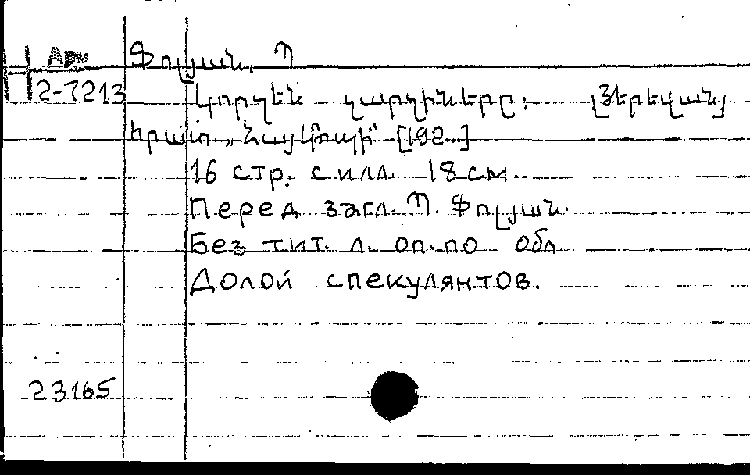 Арм Փոլյան, Պ
Н
2-7213
Կորչեն չարչիները. [Երևան]
հրատ „Նալբանդի" [192.]
16 стр. с илл. 18 см.
Перед загл. Պ. Փոլյան
Без тит. л. оп. по обл
Долой спекулянтов.
23165